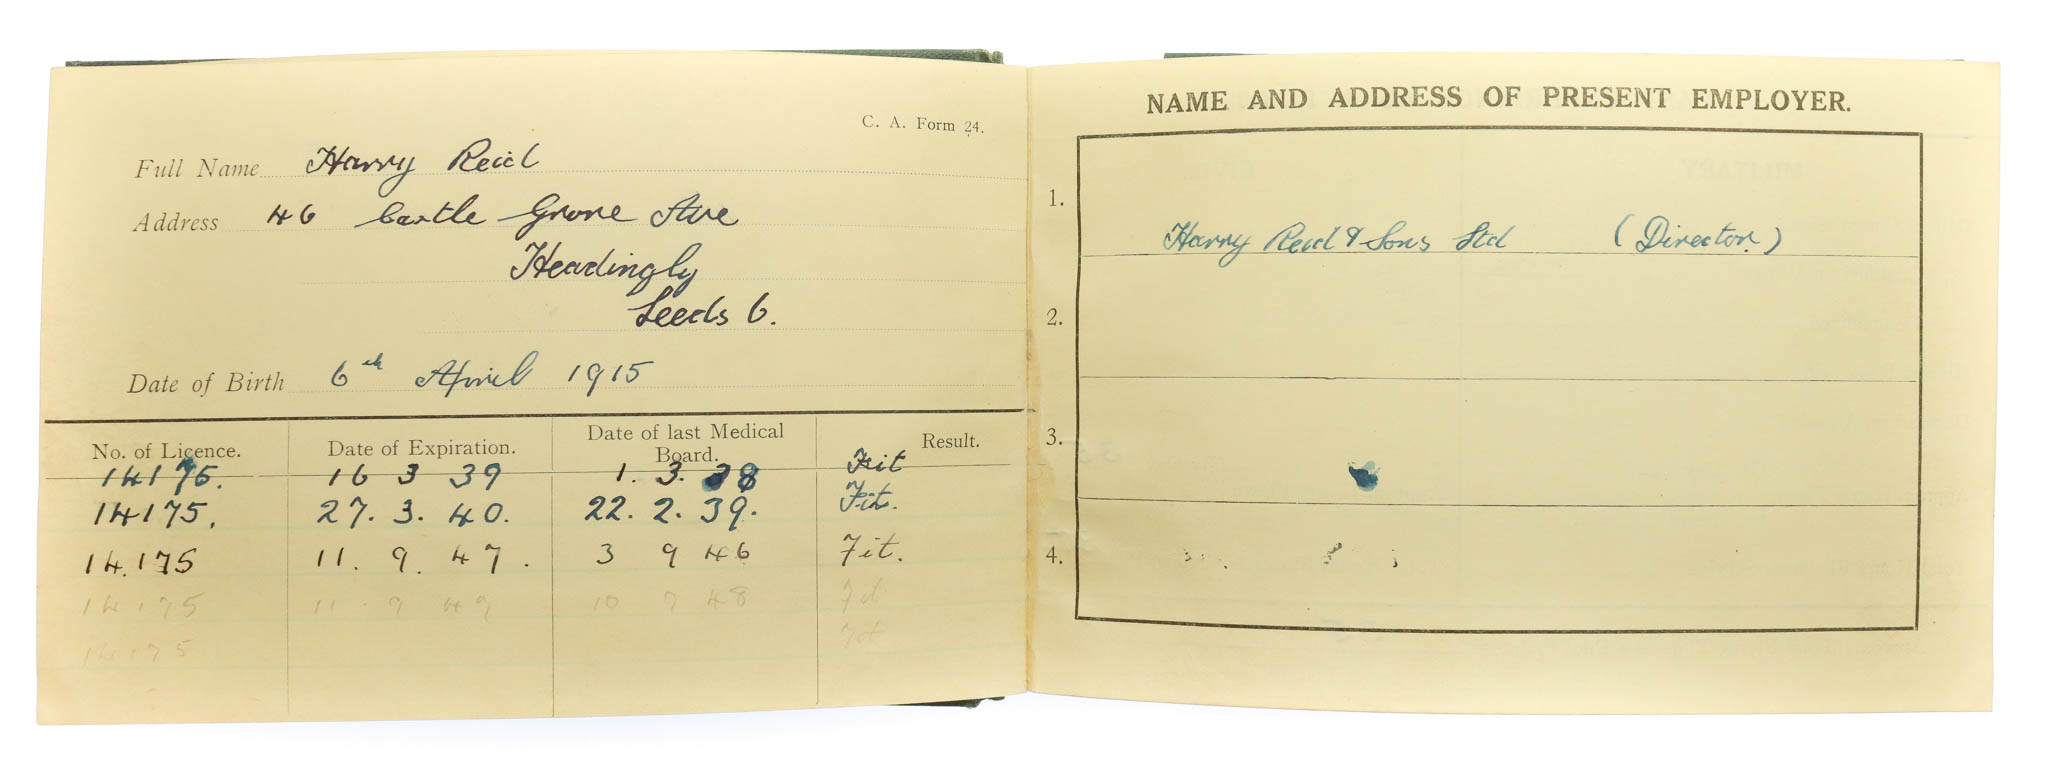 C. A. Form 24.
Full Name Harry Reid
Address 46 Castle Grove Ave
Headingly
Leeds 6.
Date of Birth 6th April 1915
No. of Licence. Date of Expiration. Date of last Medical Board. Result.
14175. 16 3 39 1. 3. 38 Fit
14175. 27. 3. 40. 22. 2. 39. Fit.
14.175 11. 9. 47. 3 9 46 Fit.
14175 11 9 49 10 9 48 Fit
14175 Fit
NAME AND ADDRESS OF PRESENT EMPLOYER.
1.
Harry Reid & Sons Ltd (Director.)
2.
3.
4.